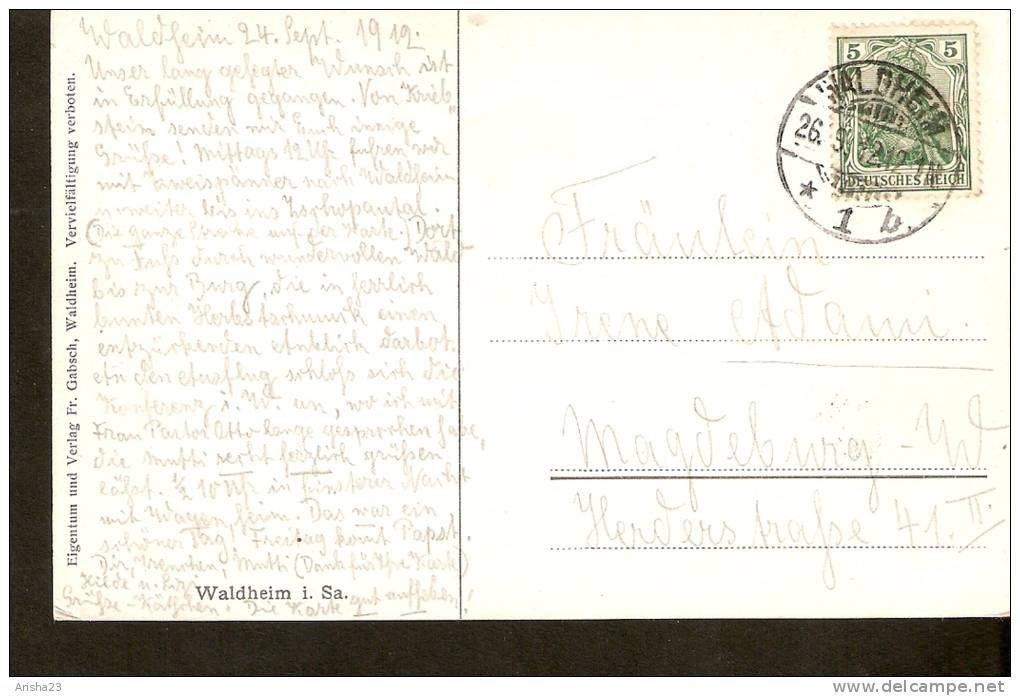 Waldheim 24. Sept. 1912.
Unser lang gehegter Wunsch ist
in Erfüllung gegangen. Von Krieb-
stein senden wir Euch innige
Grüße! Mittags 12 Uhr fuhren wir
mit Zweispänner nach Waldheim
u. weiter bis ins Zschopautal.
(Die ganze Strecke auf der Karte.) Dort
zu Fuß durch wundervollen Wald
bis zur Burg, die in herrlich
bunten Herbstschmuck einen
entzückenden Anblick darbot.
An den Ausflug schloß sich die
Konferenz i. W. an, wo ich mit
Frau Pastor Otto lange gesprochen habe,
die Mutti recht herzlich grüßen
läßt. ½ 10 Uhr in finsterer Nacht
mit Wagen heim. Das war ein
schöner Tag! Freitag komt Papst.
Dir, Irenchen, Mutti (Dank für Ihre Karte)
Hilde u.
Grüße - Käthchen. Die Karte gut aufheben!
Eigentum und Verlag Fr. Gabsch, Waldheim. Vervielfältigung verboten.
Waldheim i. Sa.
5 5
DEUTSCHES REICH
WALDHEIM
26. 9. 12.
* 1 b.
Fräulein
Irene Adami.
Magdeburg - W.
Herderstraße 41. II
Arisha23
delcampe.net